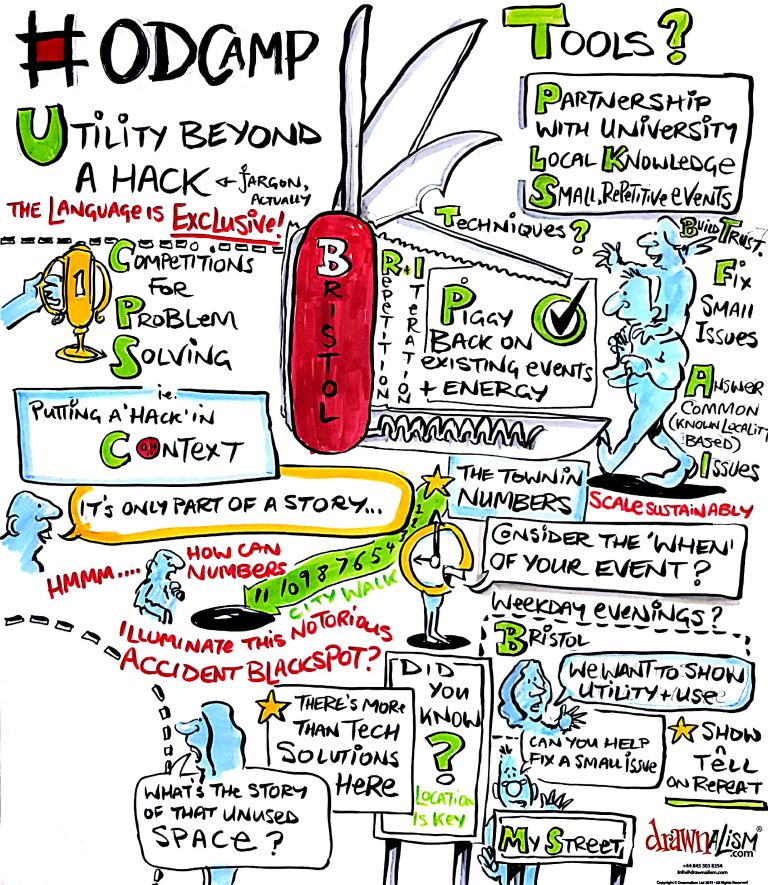 #ODCAMP
UTILITY BEYOND
A HACK ← JARGON,
ACTUALLY
THE LANGUAGE IS EXCLUSIVE!
TOOLS?
PARTNERSHIP
WITH UNIVERSITY
LOCAL KNOWLEDGE
SMALL, REPETITIVE EVENTS
1
COMPETITIONS
FOR
PROBLEM
SOLVING
i.e.
PUTTING A 'HACK' IN
CONTEXT
BRISTOL
TECHNIQUES?
REPETITION
+
ITERATION
PIGGY
BACK ON
EXISTING EVENTS
+ ENERGY
BUILD TRUST.
FIX
SMALL
ISSUES
ANSWER
COMMON
(KNOWN LOCALITY
BASED)
ISSUES
SCALE SUSTAINABLY
IT'S ONLY PART OF A STORY...
THE TOWN IN
NUMBERS
HMMM....
HOW CAN
NUMBERS
11 10 9 8 7 6 5 4 3 2 1
CITY WALK
ILLUMINATE THIS NOTORIOUS
ACCIDENT BLACKSPOT?
CONSIDER THE 'WHEN'
OF YOUR EVENT?
WEEKDAY EVENINGS?
BRISTOL
WE WANT TO SHOW
UTILITY + USE
CAN YOU HELP
FIX A SMALL ISSUE
SHOW
^
TELL
ON REPEAT
MY STREET
WHAT'S THE STORY
OF THAT UNUSED
SPACE?
THERE'S MORE
THAN TECH
SOLUTIONS
HERE
DID
YOU
KNOW
?
LOCATION
IS KEY
drawnalism®
.com
+44 845 303 8354
info@drawnalism.com
Copyright © Drawnalism Ltd 2019 - All Rights Reserved